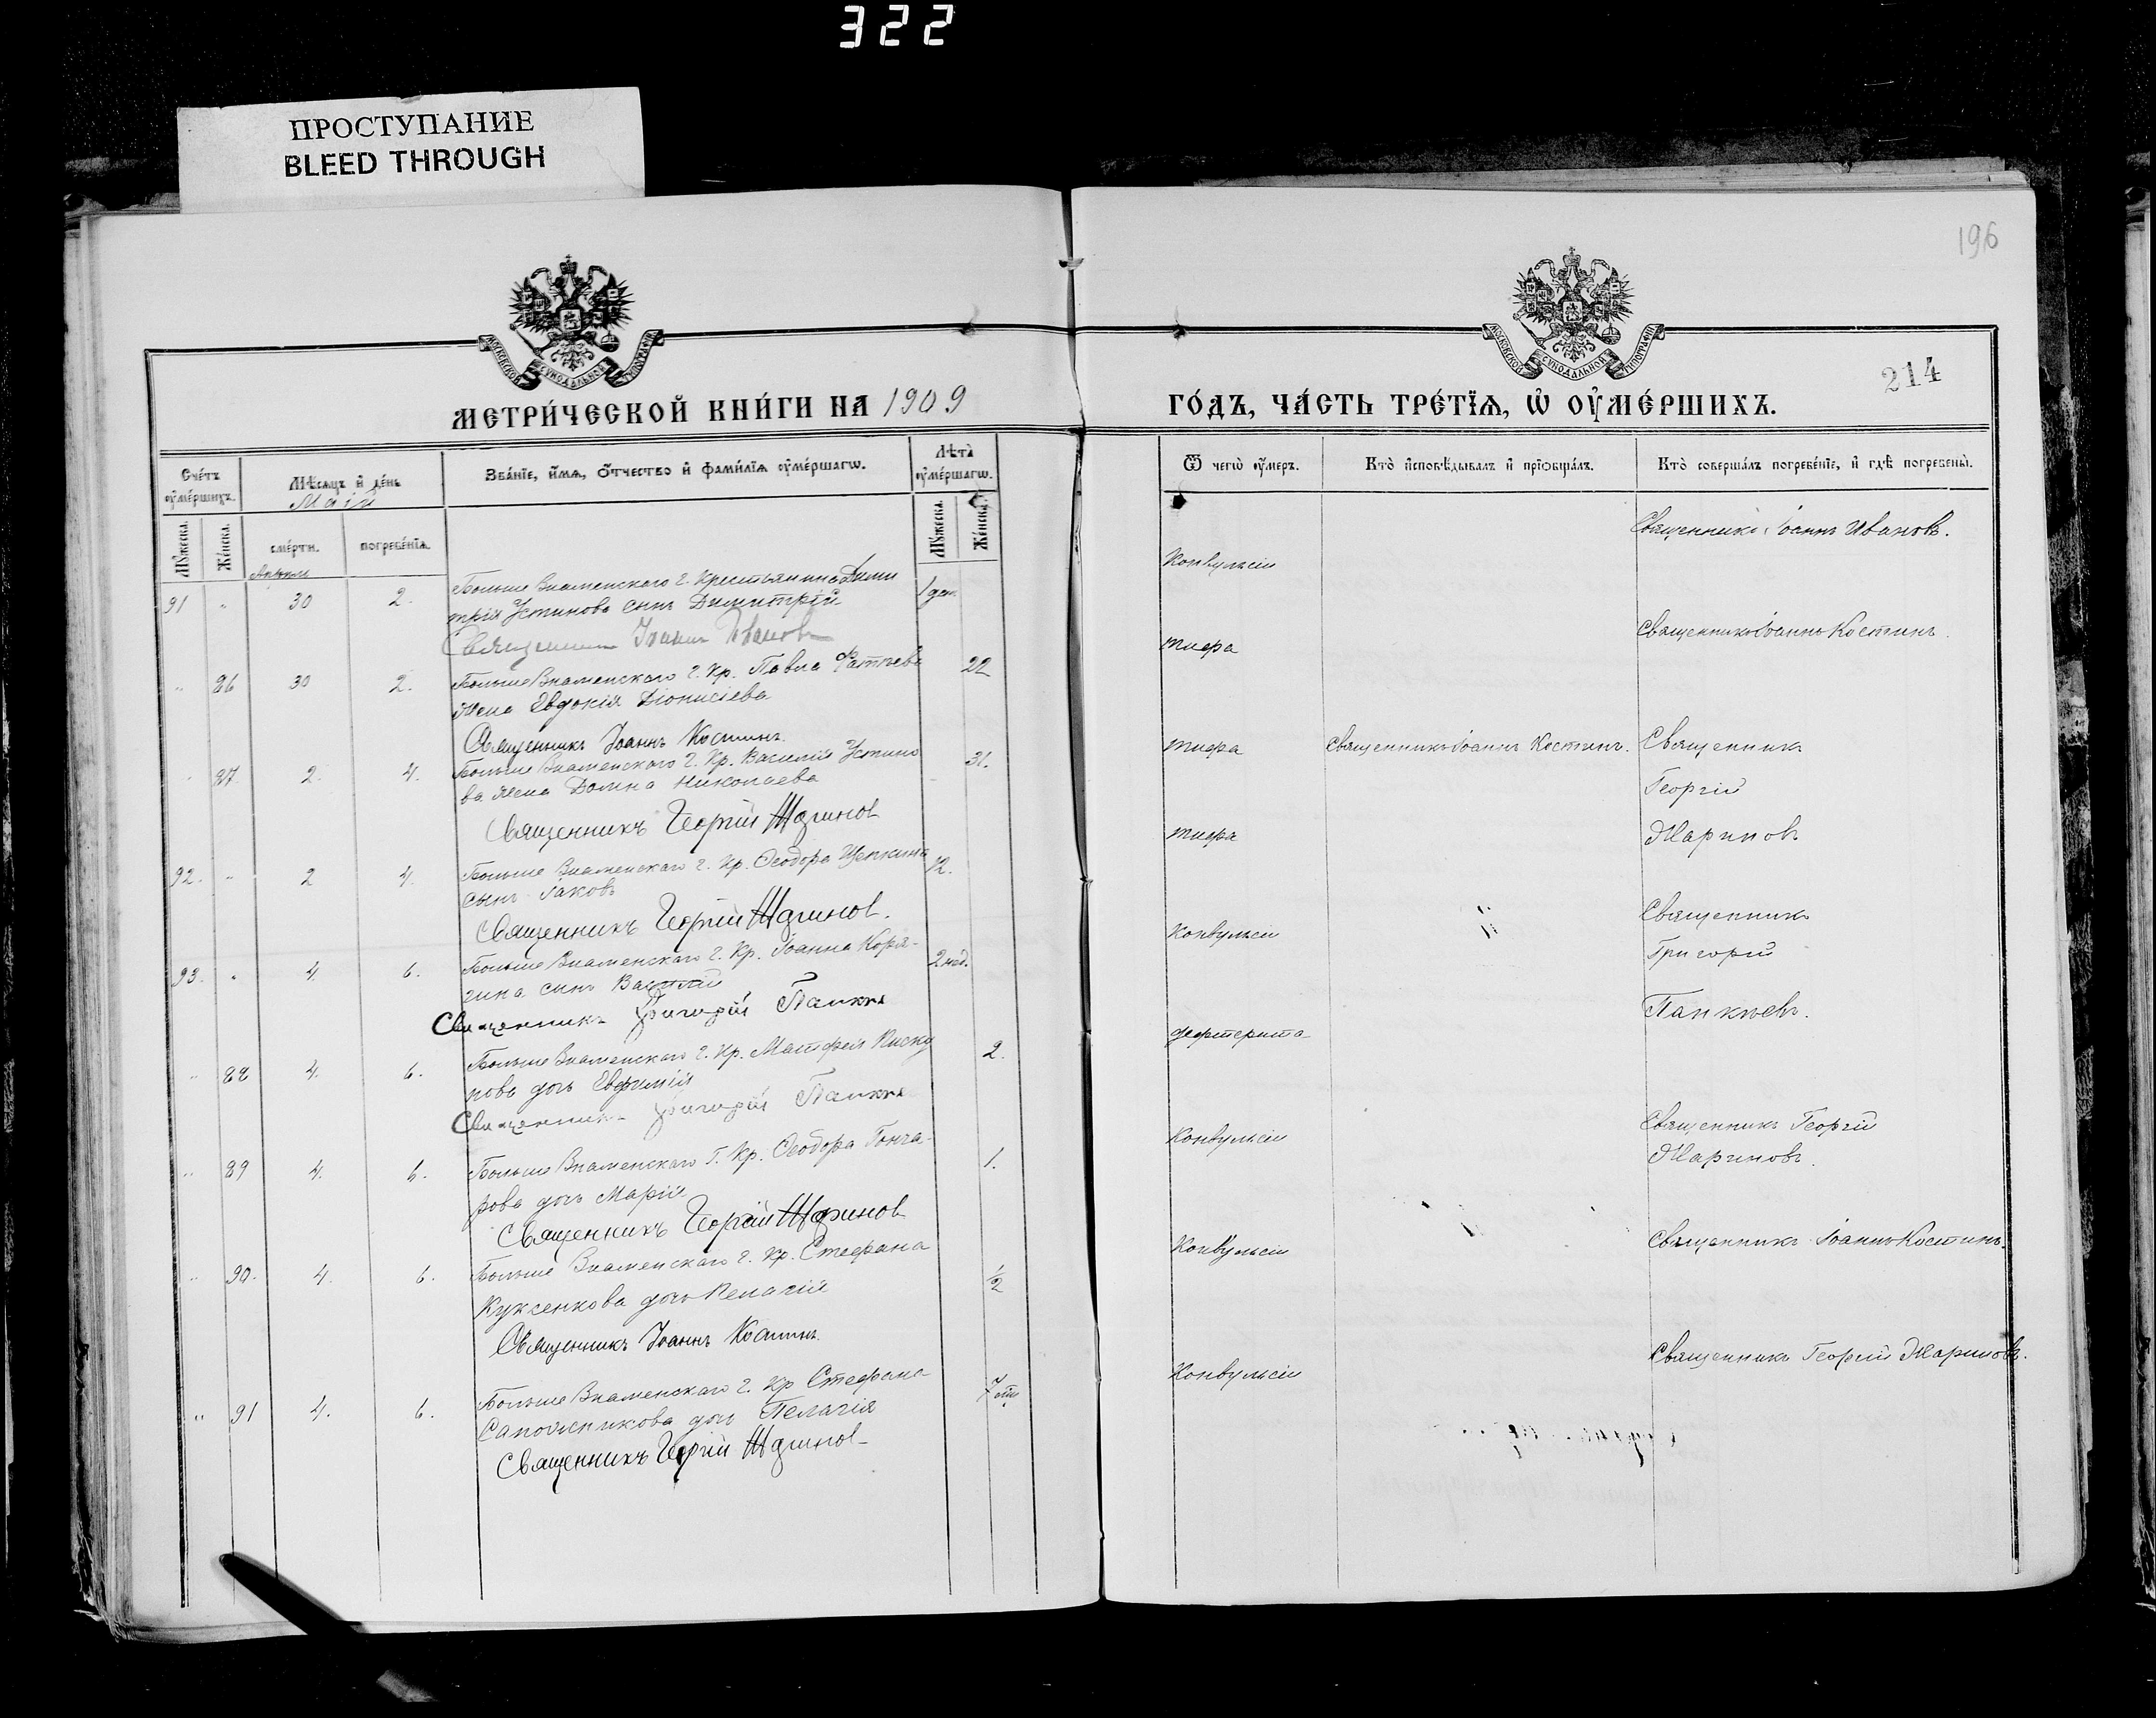 322
ПРОСТУПАНИЕ
BLEED THROUGH
196
МОСКОВСКОЙ СѴНОДАЛЬНОЙ ТИПОГРАФІИ
МОСКОВСКОЙ СѴНОДАЛЬНОЙ ТИПОГРАФІИ
214
МЕТРИ́ЧЕСКОЙ КНИ́ГИ НА 1909
ГО́ДЪ, ЧА́СТЬ ТРЕ́ТЇѦ, Ѡ҆ ОУ҆МЕ́РШИХЪ.
Сче́тъ оу҆ме́ршихъ.
Мѣ́сяцъ и҆ де́нь
Маій
Зва́нїе, и҆́мѧ, ѻ҆́тчество и҆ фами́лїѧ оу҆ме́ршагѡ.
Лѣ́та̀ оу҆ме́ршагѡ.
Му́жеска.
Же́нска.
сме́рти.
погребе́нїѧ.
Му́жеска.
Же́нска.
Ѿ чегѡ̀ оу҆́меръ.
Кто̀ и҆сповѣ́дывалъ и҆ прїѡбща́лъ.
Кто̀ соверша́лъ погребе́нїе, и҆ гдѣ̀ погребены̀.
Апрѣль
91 " 30 2. Больше Знаменскаго г. Крестьянина Дими
трія Устинова сынъ Димитрій 1 ден.
Священник Іоанн Иванов
Конвульсіи
Священникъ Іоаннъ Ивановъ.
" 86 30 2. Больше Знаменскаго г. Кр. Павла Фатѣева 22
жена Евдокія Діонисіева
Священникъ Іоаннъ Костинъ.
тифа
Священникъ Іоаннъ Костинъ.
" 87 2. 4. Больше Знаменскаго г. Кр. Василія Устино 31.
ва жена Домна Николаева
Священникъ Георгій Жаринов
тифа
Священникъ Іоаннъ Костинъ.
Священникъ
Георгій
Жариновъ
92. " 2 4. Больше Знаменскаго г. Кр. Ѳеодора Щепкина 12.
сынъ Іаковъ
Священникъ Георгій Жаринов.
тифа
93. " 4. 6. Больше Знаменскаго г. Кр. Іоанна Коря- 2 нед.
гина сынъ Василій
Священникъ Григорій Панкѣе
Конвульсіи
Священникъ
Григорій
Панкѣевъ.
" 88 4. 6. Больше Знаменскаго г. Кр. Матфея Писку 2.
нова дочь Евфимія
Священникъ Григорій Панкѣе
дефтерита
" 89 4. 6. Больше Знаменскаго г. Кр. Ѳеодора Гонча- 1.
рова дочь Марія
Священникъ Георгій Жаринов
Конвульсіи
Священникъ Георгій
Жариновъ.
" 90. 4. 6. Больше Знаменскаго г. Кр. Стефана 1/2
Куксенкова дочь Пелагія
Священникъ Іоаннъ Костинъ.
Конвульсіи
Священникъ Іоаннъ Костинъ.
" 91 4. 6. Больше Знаменскаго г. Кр Стефана 7 мц
Сапожникова дочь Пелагія
Священникъ Георгій Жаринов
Конвульсіи
Священникъ Георгій Жариновъ.